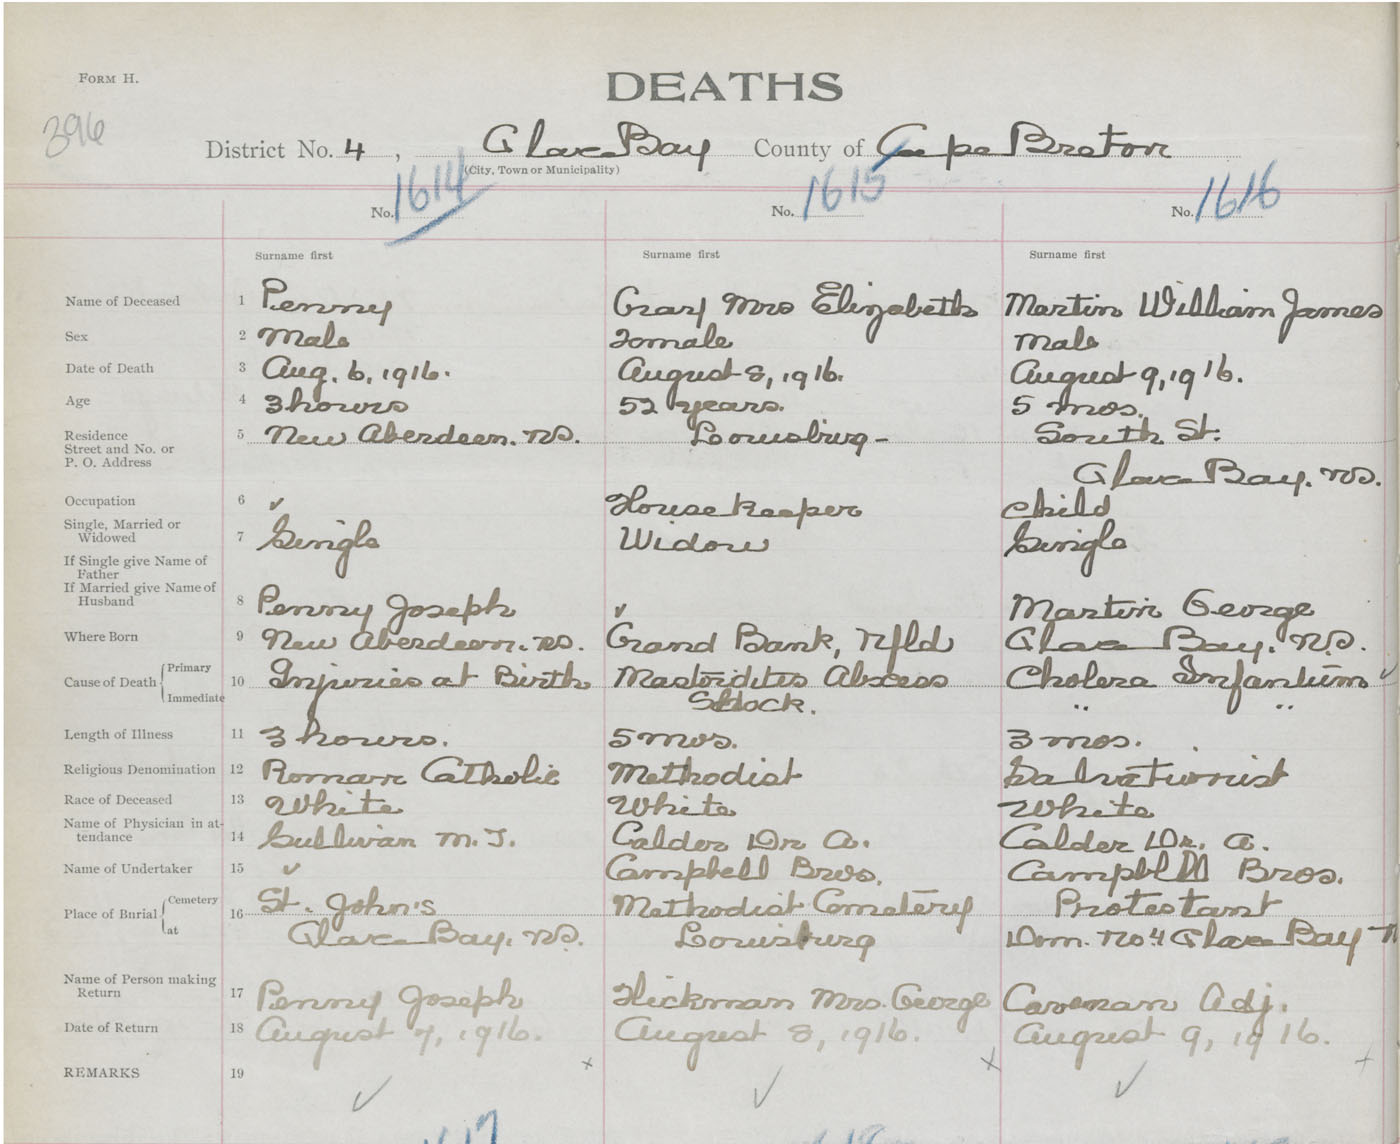 FORM H.
DEATHS
396
District No. 4, Glace Bay County of Cape Breton
(City, Town or Municipality)
No. 1614 No. 1615 No. 1616
Surname first Surname first Surname first
Name of Deceased 1 Penny Gray Mrs Elizabeth Martin William James
Sex 2 Male Female Male
Date of Death 3 Aug. 6, 1916. August 8, 1916. August 9, 1916.
Age 4 3 hours 52 years. 5 mos.
Residence 5 New Aberdeen. NS. Louisburg - South St.
Street and No. or
P. O. Address Glace Bay. NS.
Occupation 6 ✓ House keeper child
Single, Married or
Widowed 7 Single Widow Single
If Single give Name of
Father
If Married give Name of
Husband 8 Penny Joseph ✓ Martin George
Where Born 9 New Aberdeen. NS. Grand Bank, Nfld Glace Bay. N.S.
Cause of Death Primary 10 Injuries at Birth Mastoiditis Abscess Cholera Infantum ✓
Immediate Shock. " "
Length of Illness 11 3 hours. 5 mos. 3 mos.
Religious Denomination 12 Roman Catholic Methodist Salvationist
Race of Deceased 13 White White White
Name of Physician in at-
tendance 14 Sullivan M. T. Calder Dr A. Calder Dr. A.
Name of Undertaker 15 ✓ Campbell Bros. Campbell Bros.
Place of Burial Cemetery 16 St. John's Methodist Cemetery Protestant
at Glace Bay. NS. Louisburg Dom. No 4 Glace Bay N
Name of Person making
Return 17 Penny Joseph Hickman Mrs. George Adj.
Date of Return 18 August 7, 1916. August 8, 1916. August 9, 1916.
REMARKS 19 x x x
✓ ✓ ✓
1617